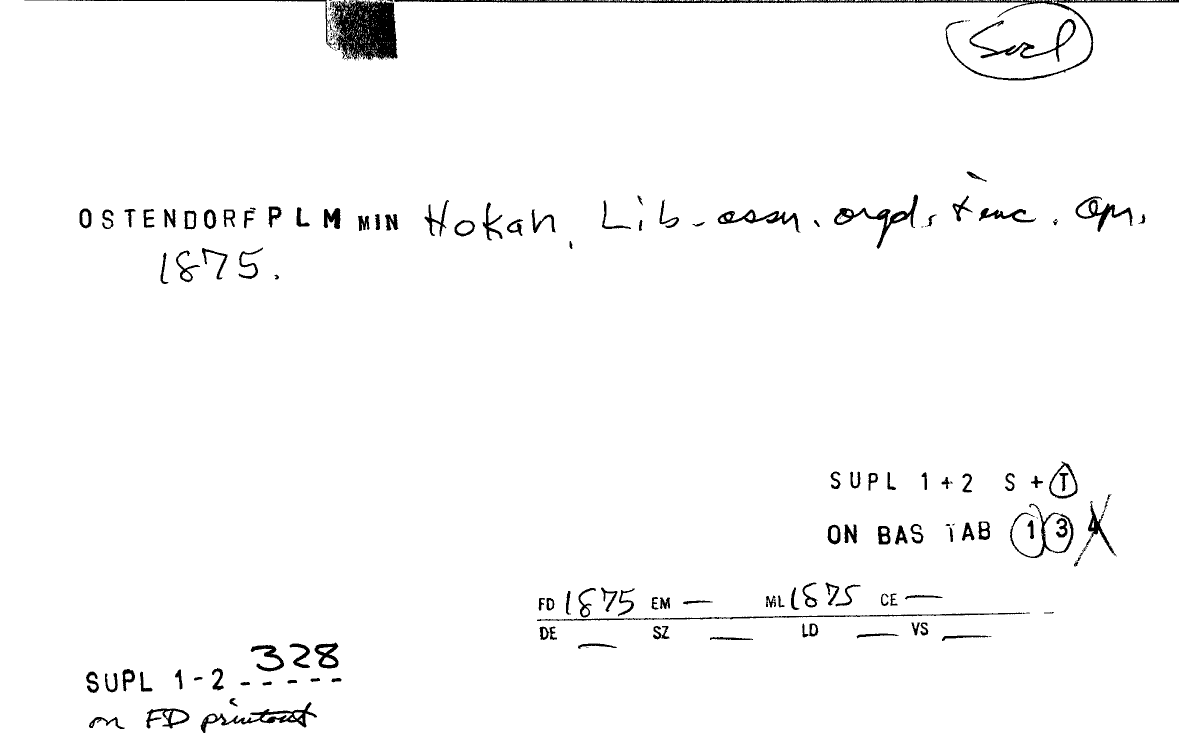 Socl
OSTENDORF P L M MIN Hokah, Lib. assn. orgd. & inc. Apr.
1875.
SUPL 1+2 S+T
ON BAS TAB 1 3 4
FD 1875 EM — ML 1875 CE —
DE — SZ — LD — VS —
SUPL 1-2 328
on FD printout